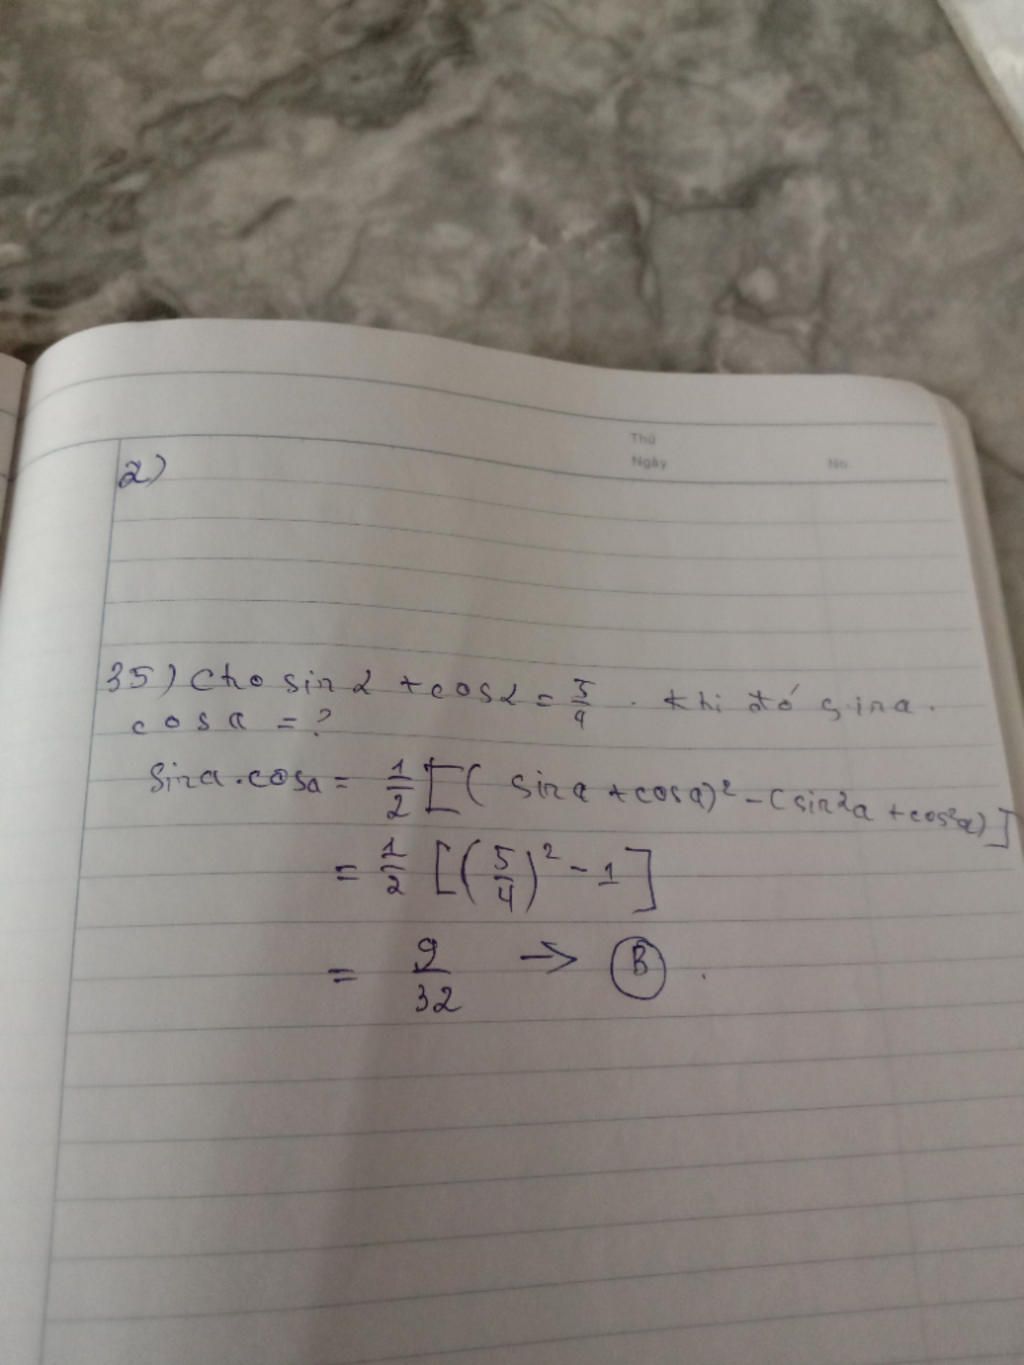 Thứ
Ngày No.
2)
35) Cho sin α + cos α = 5/4 . Khi đó sin a .
cos a = ?
Sin a . cos a = 1/2 [( sin a + cos a)² - (sin²a + cos²a)]
= 1/2 [(5/4)² - 1]
= 9/32 → B .